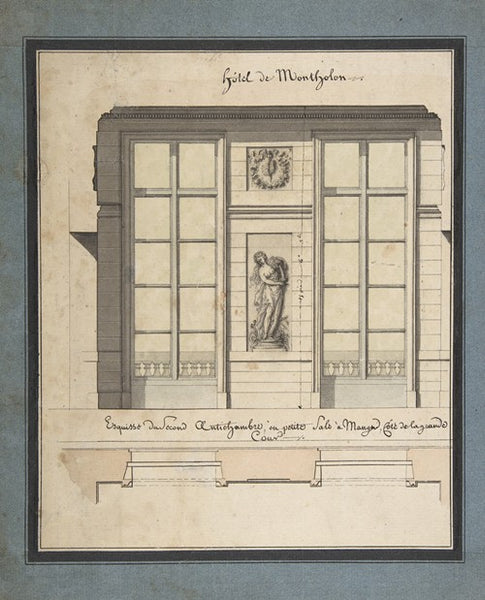 hôtel de Montholon
Esquisse du Second Antichambre, ou petite Salè à Manger, Côté de la grande
Cour